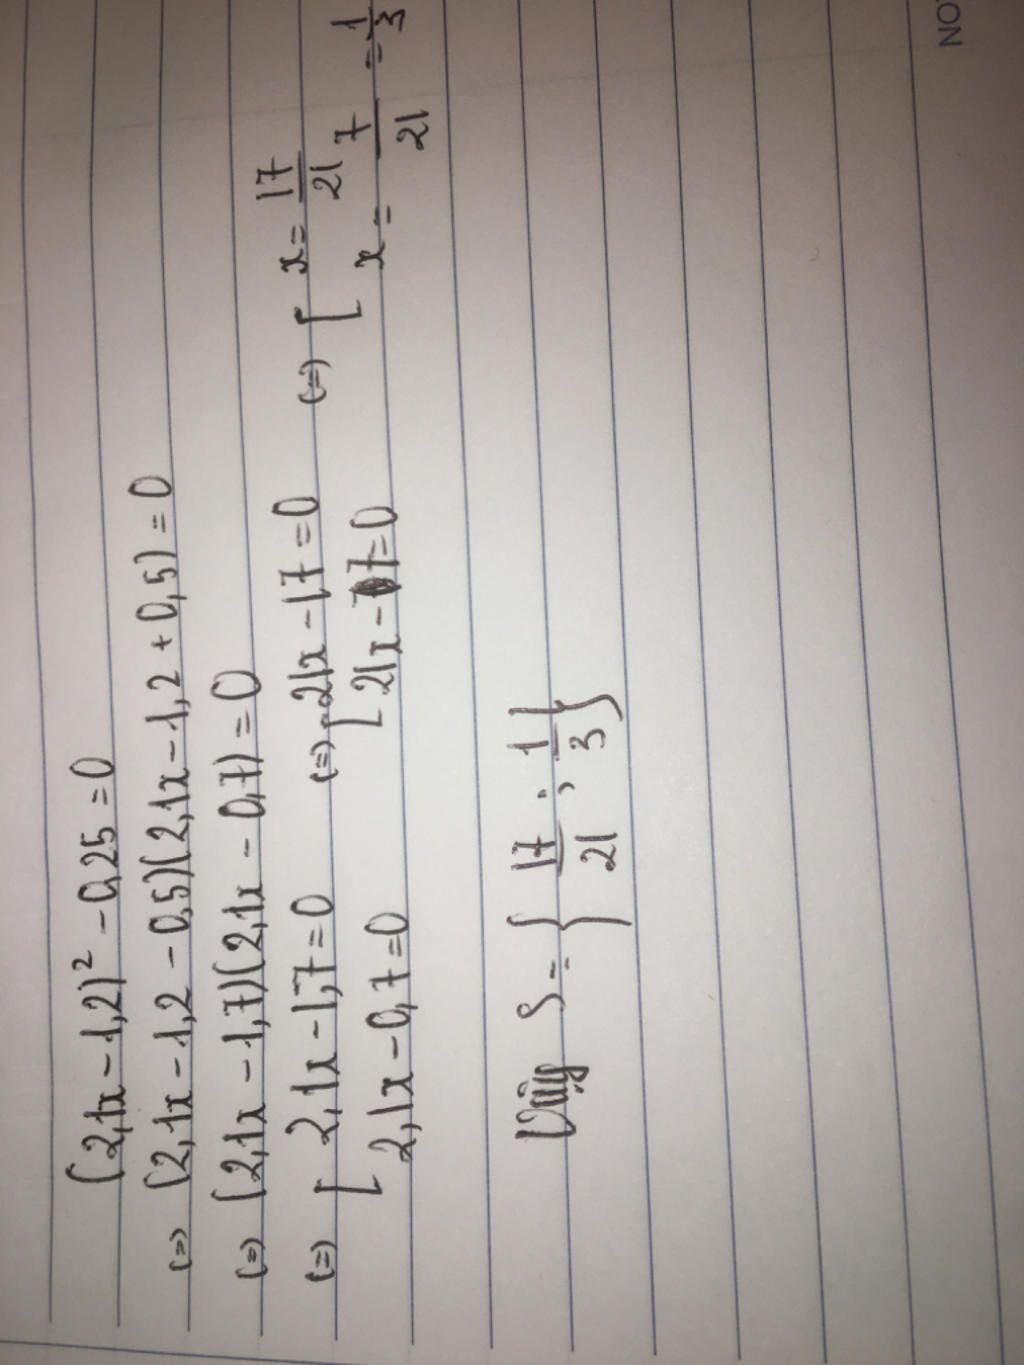 (2,1x - 1,2)² - 0,25 = 0
(=) (2,1x - 1,2 - 0,5)(2,1x - 1,2 + 0,5) = 0
(=) (2,1x - 1,7)(2,1x - 0,7) = 0
(=) [ 2,1x - 1,7 = 0 (=) [ 21x - 17 = 0 (=) [ x = 17/21
2,1x - 0,7 = 0 21x - 7 = 0 x = 7/21 = 1/3
Vậy S = { 17/21 ; 1/3 }